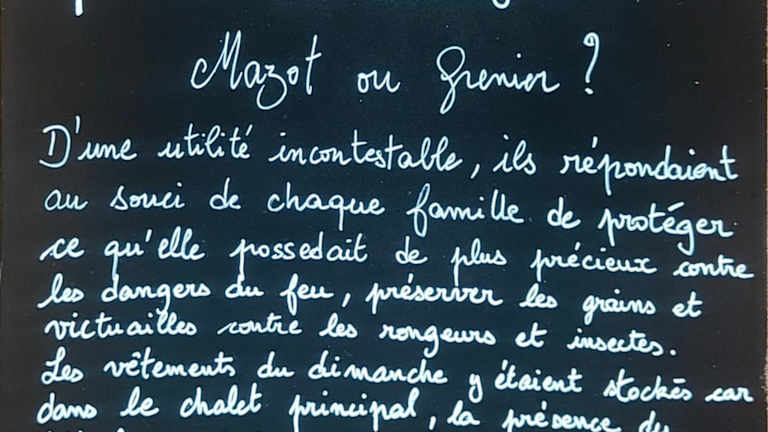 Mazot ou grenier ?
D'une utilité incontestable, ils répondaient
au souci de chaque famille de protéger
ce qu'elle possedait de plus précieux contre
les dangers du feu, préserver les grains et
victuailles contre les rongeurs et insectes.
Les vêtements du dimanche y étaient stockés car
dans le chalet principal, la présence du